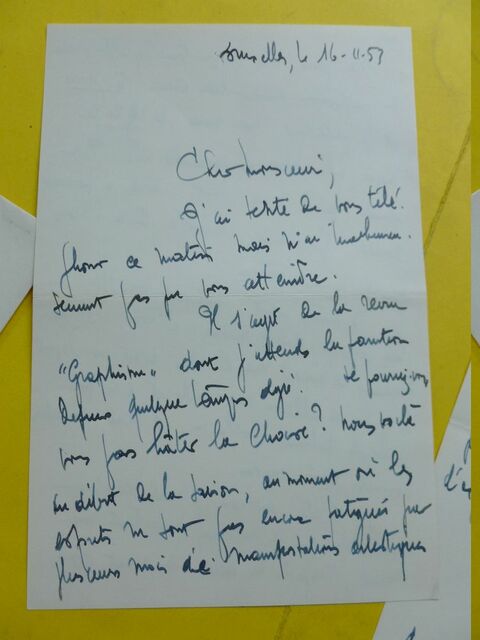 Bruxelles, le 16-11-53
Cher Monsieur,
J'ai tenté de vous télé-
phoner ce matin mais n'ai malheureu-
sement pas pu vous atteindre.
Il s'agit de la revue
"Graphisme" dont j'attends la parution
depuis quelque temps déjà. Ne pourriez-vous
pas hâter la chose? Nous voilà
au début de la saison, au moment où les
esprits ne sont pas encore fatigués par
plusieurs mois de manifestations artistiques